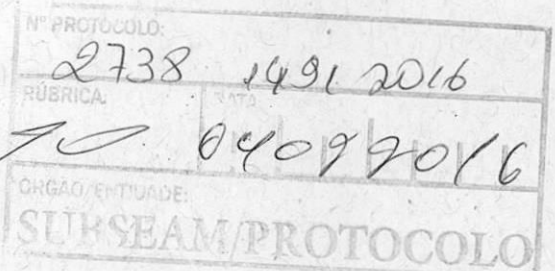 Nº PROTOCOLO:
2738 1491 2016
RÚBRICA: DATA
04092016
ÓRGÃO/ENTIDADE:
SUBSEAM/PROTOCOLO